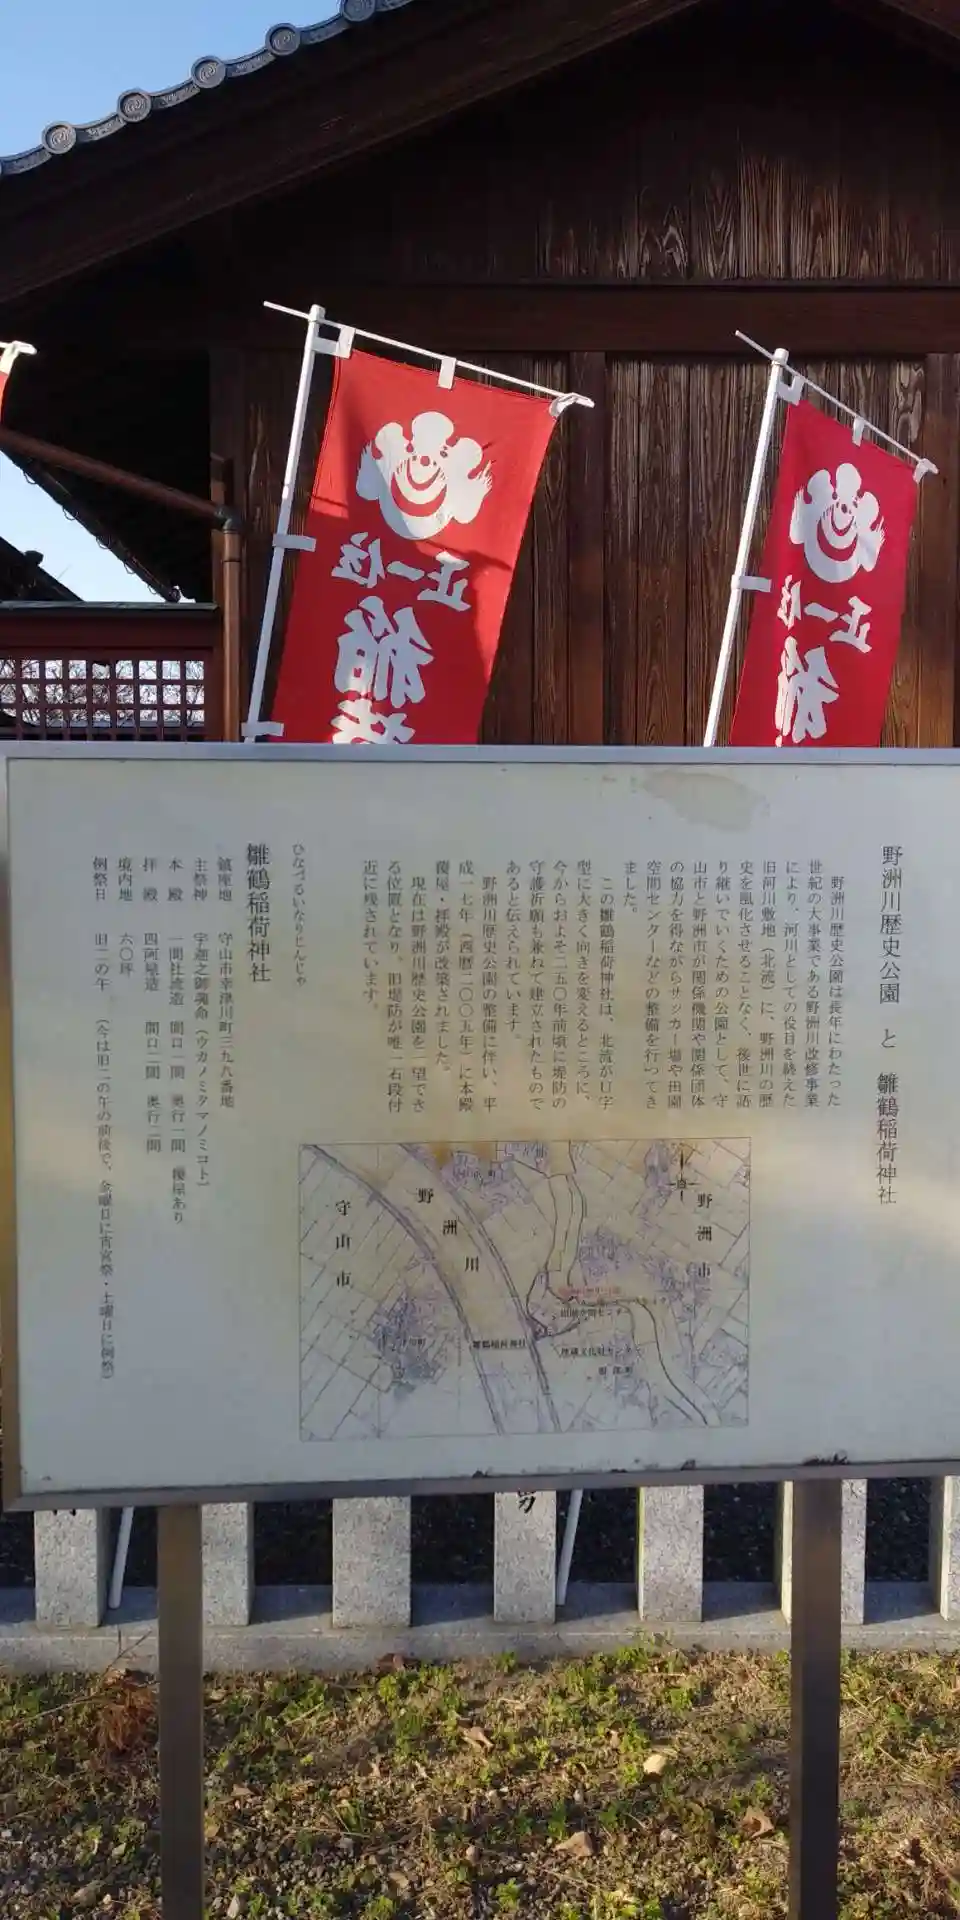 正一位
稲荷
正一位
稲
野洲川歴史公園 と 雛鶴稲荷神社
野洲川歴史公園は長年にわたった
世紀の大事業である野洲川改修事業
により、河川としての役目を終えた
旧河川敷地（北流）に、野洲川の歴
史を風化させることなく、後世に語
り継いでいくための公園として、守
山市と野洲市が関係機関や関係団体
の協力を得ながらサッカー場や田園
空間センターなどの整備を行ってき
ました。
この雛鶴稲荷神社は、北流がU字
型に大きく向きを変えるところに、
今からおよそ二五〇年前頃に堤防の
守護祈願も兼ねて建立されたもので
あると伝えられています。
野洲川歴史公園の整備に伴い、平
成一七年（西暦二〇〇五年）に本殿
覆屋・拝殿が改築されました。
現在は野洲川歴史公園を一望でき
る位置となり、旧堤防が唯一石段付
近に残されています。
ひなづるいなりじんじゃ
雛鶴稲荷神社
鎮座地 守山市幸津川町三九八番地
主祭神 宇迦之御魂命（ウカノミタマノミコト）
本 殿 一間社流造 間口一間 奥行一間 覆屋あり
拝 殿 四阿屋造 間口二間 奥行二間
境内地 六〇坪
例祭日 旧二の午 （今は旧二の午の前後で、金曜日に宵宮祭・土曜日に例祭）
野洲市
野洲川
守山市
田園空間センター
雛鶴稲荷神社
埋蔵文化財センター